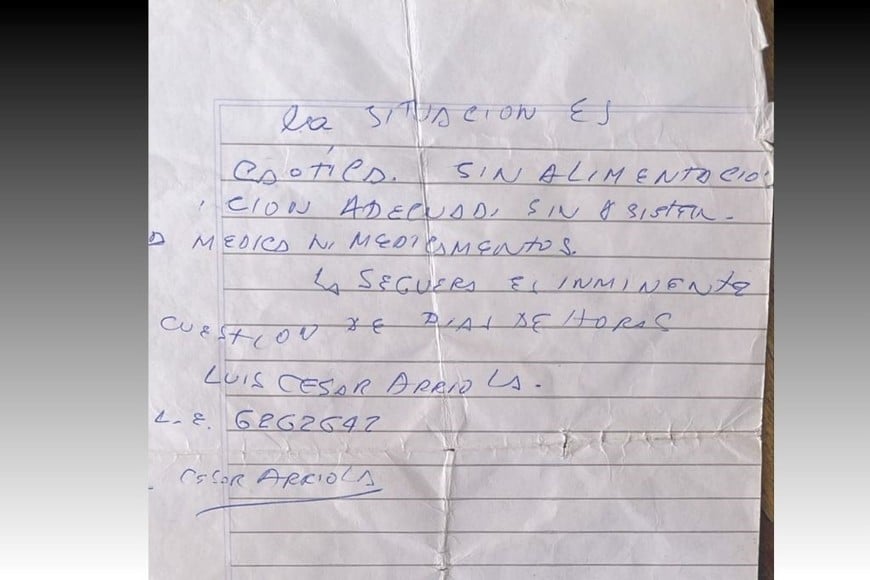 La SITUACION ES
CAOTICA. SIN ALIMENTACIO
CION ADECUADA SIN ASISTEN-
A MEDICA NI MEDICAMENTOS.
LA SEGUERA ES INMINENTE
CUESTION DE DIAS DE HORAS
LUIS CESAR ARRIOLA.
L.E. 6262642
CESAR ARRIOLA